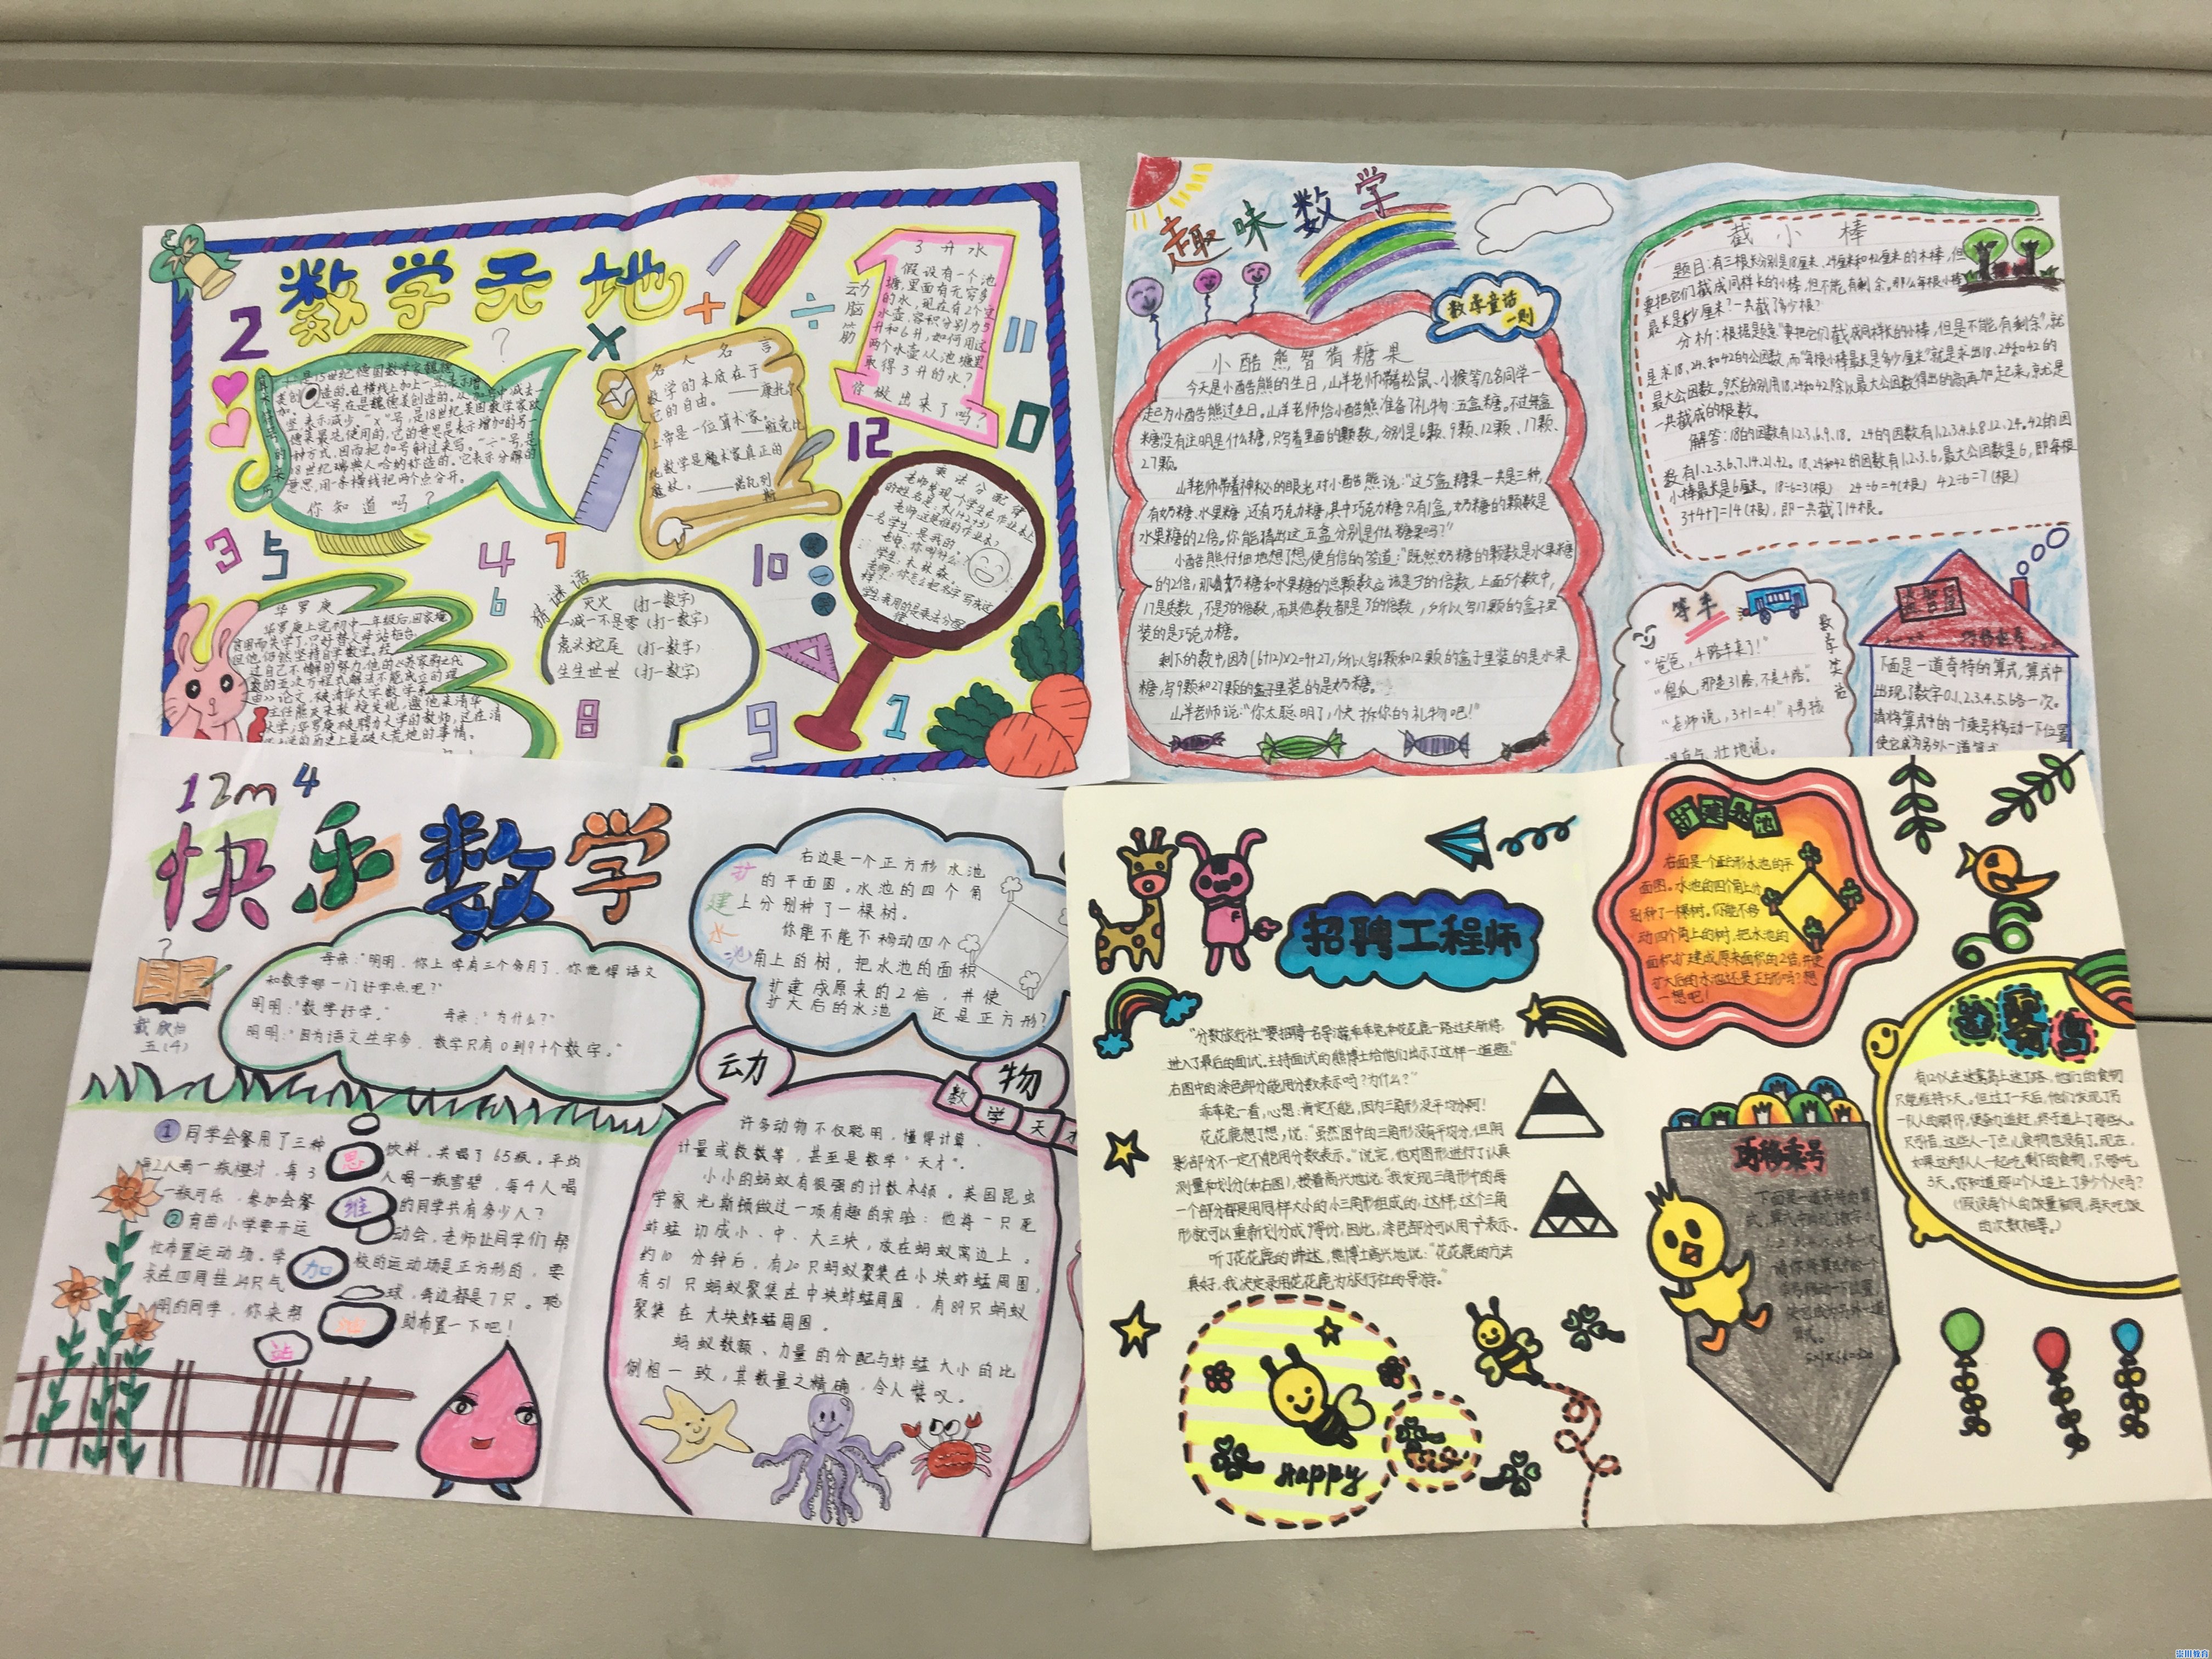 数学天地
3升水
假设有一个池
塘,里面有无穷多
的水,现在有2个空
水壶,容积分别为5
升和6升,如何用这
两个水壶从池塘里
取得3升的水?
你做出来了吗?
动脑筋
名人名言
数学的本质在于
它的自由。——康托尔
上帝是一位算术家。
纯数学是魔术家真正的
魔杖。
你知道吗?
猜谜语
灭火 (打一数字)
一减一不是零 (打一数字)
虎头蛇尾 (打一数字)
生生世世 (打一数字)
乘法分配律
华罗庚
华罗庚上完初中一年级后,因家境
趣味数学
数学童话
一则
小酷熊智猜糖果
今天是小酷熊的生日,山羊老师带着松鼠、小猴等几名同学一
起已为小酷熊过生日。山羊老师给小酷熊准备了礼物:五盒糖。不过每盒
糖没有注明是什么糖,只写着里面的颗数,分别是6颗、9颗、12颗、17颗、
27颗。
山羊老师带着神秘的眼光对小酷熊说:“这5盒糖果一共是三种,
有奶糖、水果糖,还有巧克力糖,其中巧克力糖只有1盒,奶糖的颗数是
水果糖的2倍。你能猜出这五盒分别是什么糖果吗?”
小酷熊仔细地想了想,便自信的答道:“既然奶糖的颗数是水果糖
的2倍,那么奶糖和水果糖的总颗数应该是3的倍数,上面5个数中,
17是质数,不是3的倍数,而其他数都是3的倍数,所以写17颗的盒子里
装的是巧克力糖。
剩下的数中,因为(6+12)×2=9+27,所以写6颗和12颗的盒子里装的是水果
糖,写9颗和27颗的盒子里装的是奶糖。
山羊老师说:“你太聪明了,快拆你的礼物吧!”
截小棒
题目:有三根长分别是18厘米、24厘米和42厘米的木棒,但
要把它们截成同样长的小棒,但不能有剩余。那么每根小棒
最长是多少厘米?一共截了多少根?
分析:根据题意“要把它们截成同样长的小棒,但是不能有剩余”,就
是求18、24和42的公因数,而“每根小棒最长是多少厘米”就是求出18、24和42的
最大公因数。然后分别用18、24和42除以最大公因数得出的商再加起来,就是
一共截成的根数。
解答:18的因数有1.2.3.6.9.18. 24的因数有1.2.3.4.6.8.12.24. 42的因
数有1.2.3.6.7.14.21.42. 18、24和42的因数有1.2.3.6,最大公因数是6,即每根
小棒最长是6厘米。 18÷6=3(根) 24÷6=4(根) 42÷6=7(根)
3+4+7=14(根),即一共截了14根。
等车
数学笑话
“爸爸,4路车来了!”
“傻瓜,那是31路,不是4路。”
“老师说,3+1=4!”小男孩
理直气壮地说。
益智屋
巧移乘号
下面是一道奇特的算式,算式中
出现了数字0.1.2.3.4.5.6各一次。
请将算式中的一个乘号移动一下位置
使它成为另外一道算式
12m4
快乐数学
戴欣怡
五(4)
母亲:“明明,你上学有三个多月了,你觉得语文
和数学哪一门好学点呢?”
明明:“数学好学。” 母亲:“为什么?”
明明:“因为语文生字多,数学只有0到9十个数字。”
扩建水池
右边是一个正方形水池
的平面图。水池的四个角
上分别种了一棵树。
你能不能不移动四个
角上的树,把水池的面积
扩建成原来的2倍,并使
扩大后的水池 还是正方形?
思维加油站
①同学会餐用了三种饮料,共喝了65瓶。平均
每2人喝一瓶橙汁,每3人喝一瓶雪碧,每4人喝
一瓶可乐,参加会餐的同学共有多少人?
②育苗小学要开运动会,老师让同学们帮
忙布置运动场。学校的运动场是正方形的,要
求在四周挂24只气球,每边都是7只。聪
明的同学,你来帮助布置一下吧!
动物
数学天才
许多动物不仅聪明,懂得计算、
计量或数数等,甚至是数学“天才”。
小小的蚂蚁有很强的计数本领。英国昆虫
学家光斯顿做过一项有趣的实验:他将一只死
蚱蜢切成小、中、大三块,放在蚂蚁窝边上。
约10分钟后,有20只蚂蚁聚集在小块蚱蜢周围,
有51只蚂蚁聚集在中块蚱蜢周围,有89只蚂蚁
聚集在大块蚱蜢周围。
蚂蚁数额、力量的分配与蚱蜢大小的比
例相一致,其数量之精确,令人赞叹。
招聘工程师
“分数旅行社”要招聘一名导游,乖乖兔和花花鹿一路过关斩将,
进入了最后的面试。主持面试的熊博士给他们出示了这样一道题:“
右图中的涂色部分能用分数表示吗?为什么?”
乖乖兔一看,心想:肯定不能,因为三角形没平均分啊!
花花鹿想了想,说:“虽然图中的三角形没有平均分,但阴
影部分不一定不能用分数表示。”说完,他对图形进行了认真
测量和划分(如右图),接着高兴地说:“我发现三角形中的每
一个部分都是用同样大小的小三角形组成的,这样,这个三角
形就可以重新划分成9等份,因此,涂色部分可以用 表示。
听了花花鹿的讲述,熊博士高兴地说:“花花鹿的方法
真好,我决定录用花花鹿为旅行社的导游。”
Happy
扩建水池
右面是一个正方形水池的平
面图。水池的四个角上分
别种了一棵树。你能不移
动四个角上的树,把水池的
面积扩建成原来面积的2倍,并使
扩大后的水池还是正方形吗?想
一想吧!
巧移乘号
下面是一道奇特的算
式,算式中出现了数字0.
请你将算式中的一个
乘号移动一下位置,
使它成为另外一道
算式。
有12个人在迷雾岛上迷了路,他们的食物
只能维持5天。但过了一天后,他们发现了另
一队人的脚印,便奋力追赶,终于追上了那些人。
只可惜,这些人一丁点儿食物也没有了。现在,
如果这两队人一起吃剩下的食物,只够吃
3天。你知道那12个人追上了多少个人吗?
(假设每个人的饭量相同,每天吃饭
的次数相等。)
崇川教育